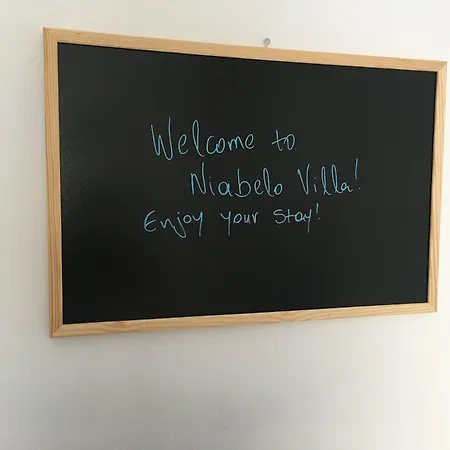 Welcome to
Niabelo Villa!
Enjoy your stay!